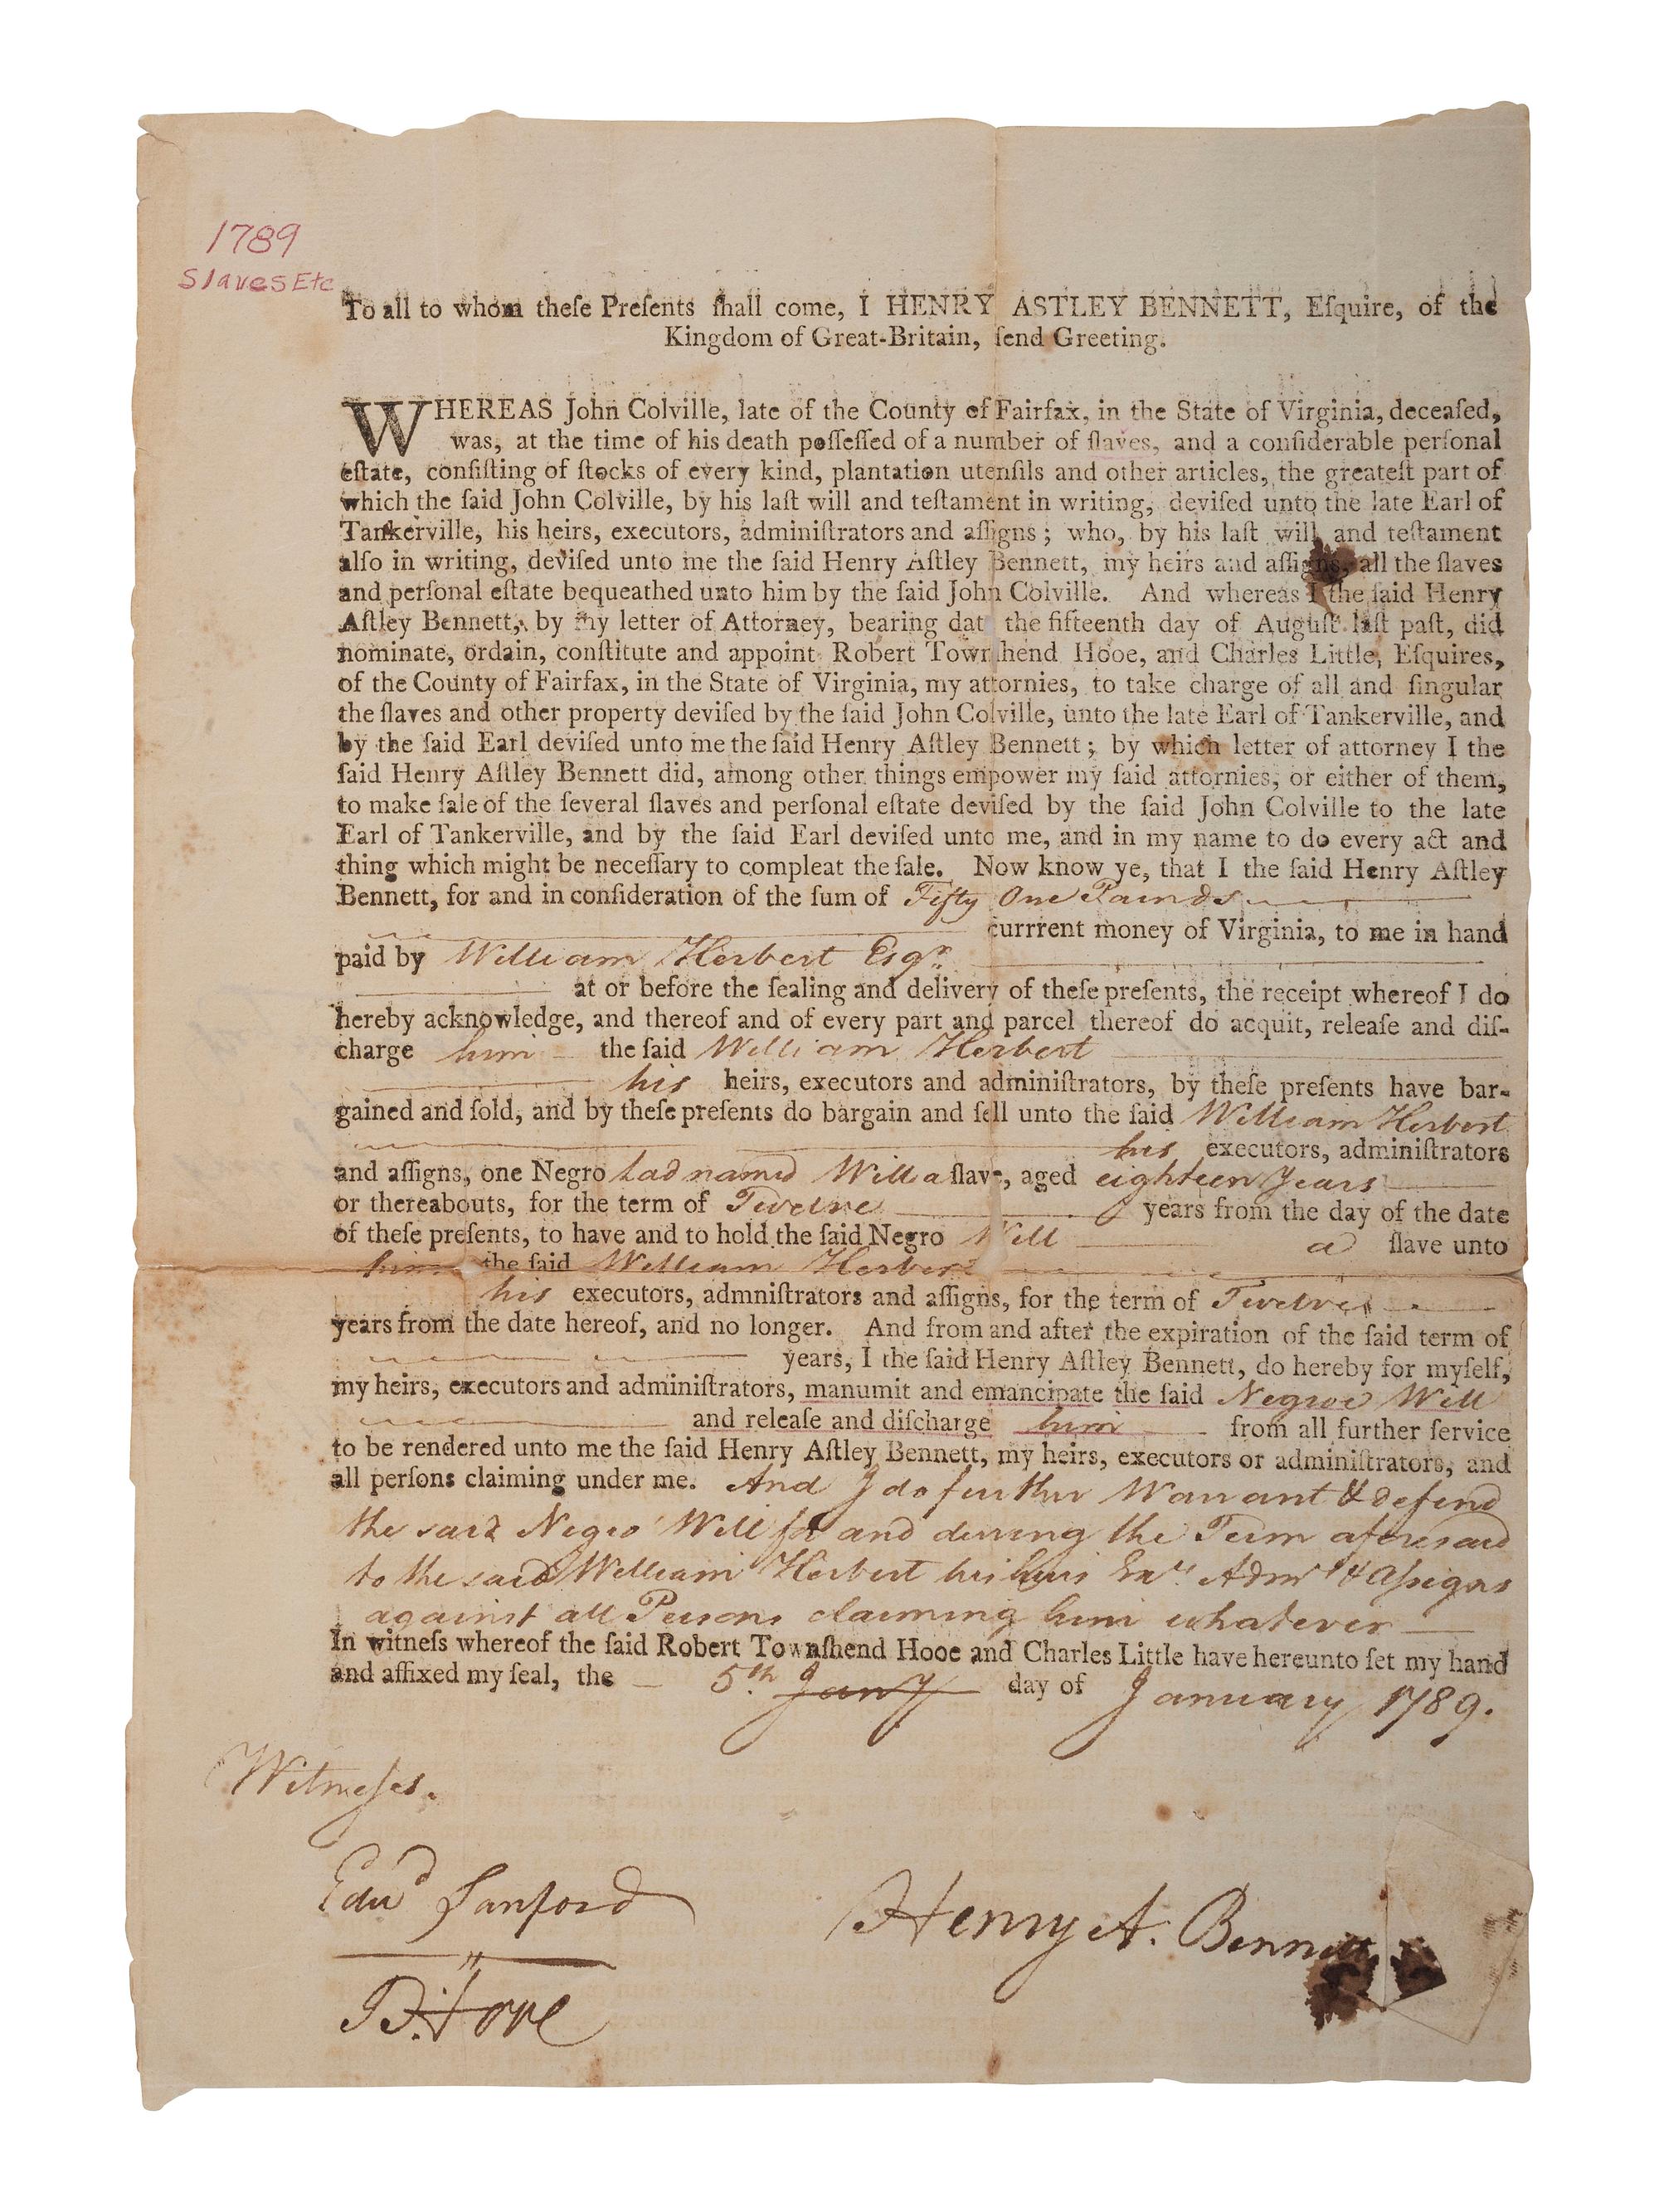 1789
Slaves Etc
To all to whom theſe Preſents ſhall come, I HENRY ASTLEY BENNETT, Eſquire, of the
Kingdom of Great-Britain, ſend Greeting.
WHEREAS John Colville, late of the County of Fairfax, in the State of Virginia, deceaſed,
was, at the time of his death poſſeſſed of a number of ſlaves, and a conſiderable perſonal
eſtate, conſiſting of ſtocks of every kind, plantation utenſils and other articles, the greateſt part of
which the ſaid John Colville, by his laſt will and teſtament in writing, deviſed unto the late Earl of
Tankerville, his heirs, executors, adminiſtrators and aſſigns; who, by his laſt will and teſtament
alſo in writing, deviſed unto me the ſaid Henry Aſtley Bennett, my heirs and aſſigns, all the ſlaves
and perſonal eſtate bequeathed unto him by the ſaid John Colville. And whereas I the ſaid Henry
Aſtley Bennett, by my letter of Attorney, bearing dat the fifteenth day of Auguſt laſt paſt, did
nominate, ordain, conſtitute and appoint Robert Townſhend Hooe, and Charles Little, Eſquires,
of the County of Fairfax, in the State of Virginia, my attornies, to take charge of all and ſingular
the ſlaves and other property deviſed by the ſaid John Colville, unto the late Earl of Tankerville, and
by the ſaid Earl deviſed unto me the ſaid Henry Aſtley Bennett; by which letter of attorney I the
ſaid Henry Aſtley Bennett did, among other things empower my ſaid attornies, or either of them,
to make ſale of the ſeveral ſlaves and perſonal eſtate deviſed by the ſaid John Colville to the late
Earl of Tankerville, and by the ſaid Earl deviſed unto me, and in my name to do every act and
thing which might be neceſſary to compleat the ſale. Now know ye, that I the ſaid Henry Aſtley
Bennett, for and in conſideration of the ſum of Fifty One Pounds
currrent money of Virginia, to me in hand
paid by William Herbert Esqr.
at or before the ſealing and delivery of theſe preſents, the receipt whereof I do
hereby acknowledge, and thereof and of every part and parcel thereof do acquit, releaſe and diſ-
charge him the ſaid William Herbert
his heirs, executors and adminiſtrators, by theſe preſents have bar-
gained and ſold, and by theſe preſents do bargain and ſell unto the ſaid William Herbert
his executors, adminiſtrators
and aſſigns, one Negro Lad named Will a ſlave, aged eighteen Years
or thereabouts, for the term of Twelve years from the day of the date
of theſe preſents, to have and to hold the ſaid Negro Will a ſlave unto
him the ſaid William Herbert
his executors, admniſtrators and aſſigns, for the term of Twelve
years from the date hereof, and no longer. And from and after the expiration of the ſaid term of
years, I the ſaid Henry Aſtley Bennett, do hereby for myſelf,
my heirs, executors and adminiſtrators, manumit and emancipate the ſaid Negroe Will
and releaſe and diſcharge him from all further ſervice
to be rendered unto me the ſaid Henry Aſtley Bennett, my heirs, executors or adminiſtrators, and
all perſons claiming under me. And I do further Warrant & defend
the said Negro Will for and during the Term aforesaid
to the said William Herbert his heirs Exrs. Admrs & Aſsigns
against all Persons claiming him whatever
In witneſs whereof the ſaid Robert Townſhend Hooe and Charles Little have hereunto ſet my hand
and affixed my ſeal, the 5th. Jany day of January 1789.
Witneſses.
Edwd Sanford
Henry A. Bennett